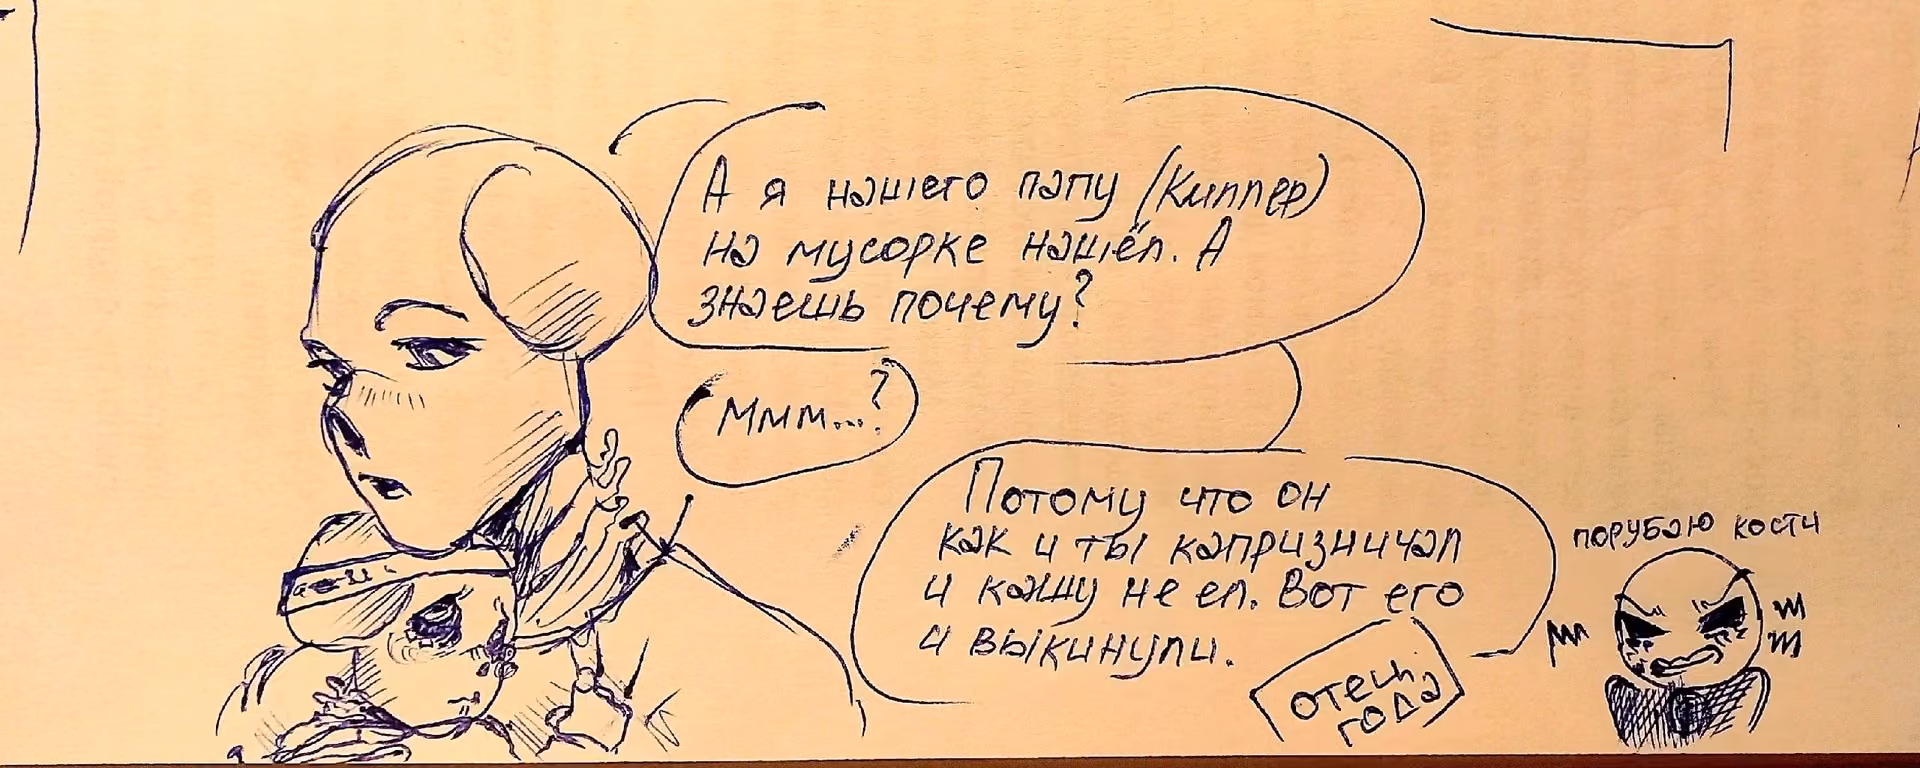 А я нашего папу (Киппер)
на мусорке нашёл. А
знаешь почему?
Ммм...?
Потому что он
как и ты капризничал
и кашу не ел. Вот его
и выкинули.
отец
года
порубаю кости